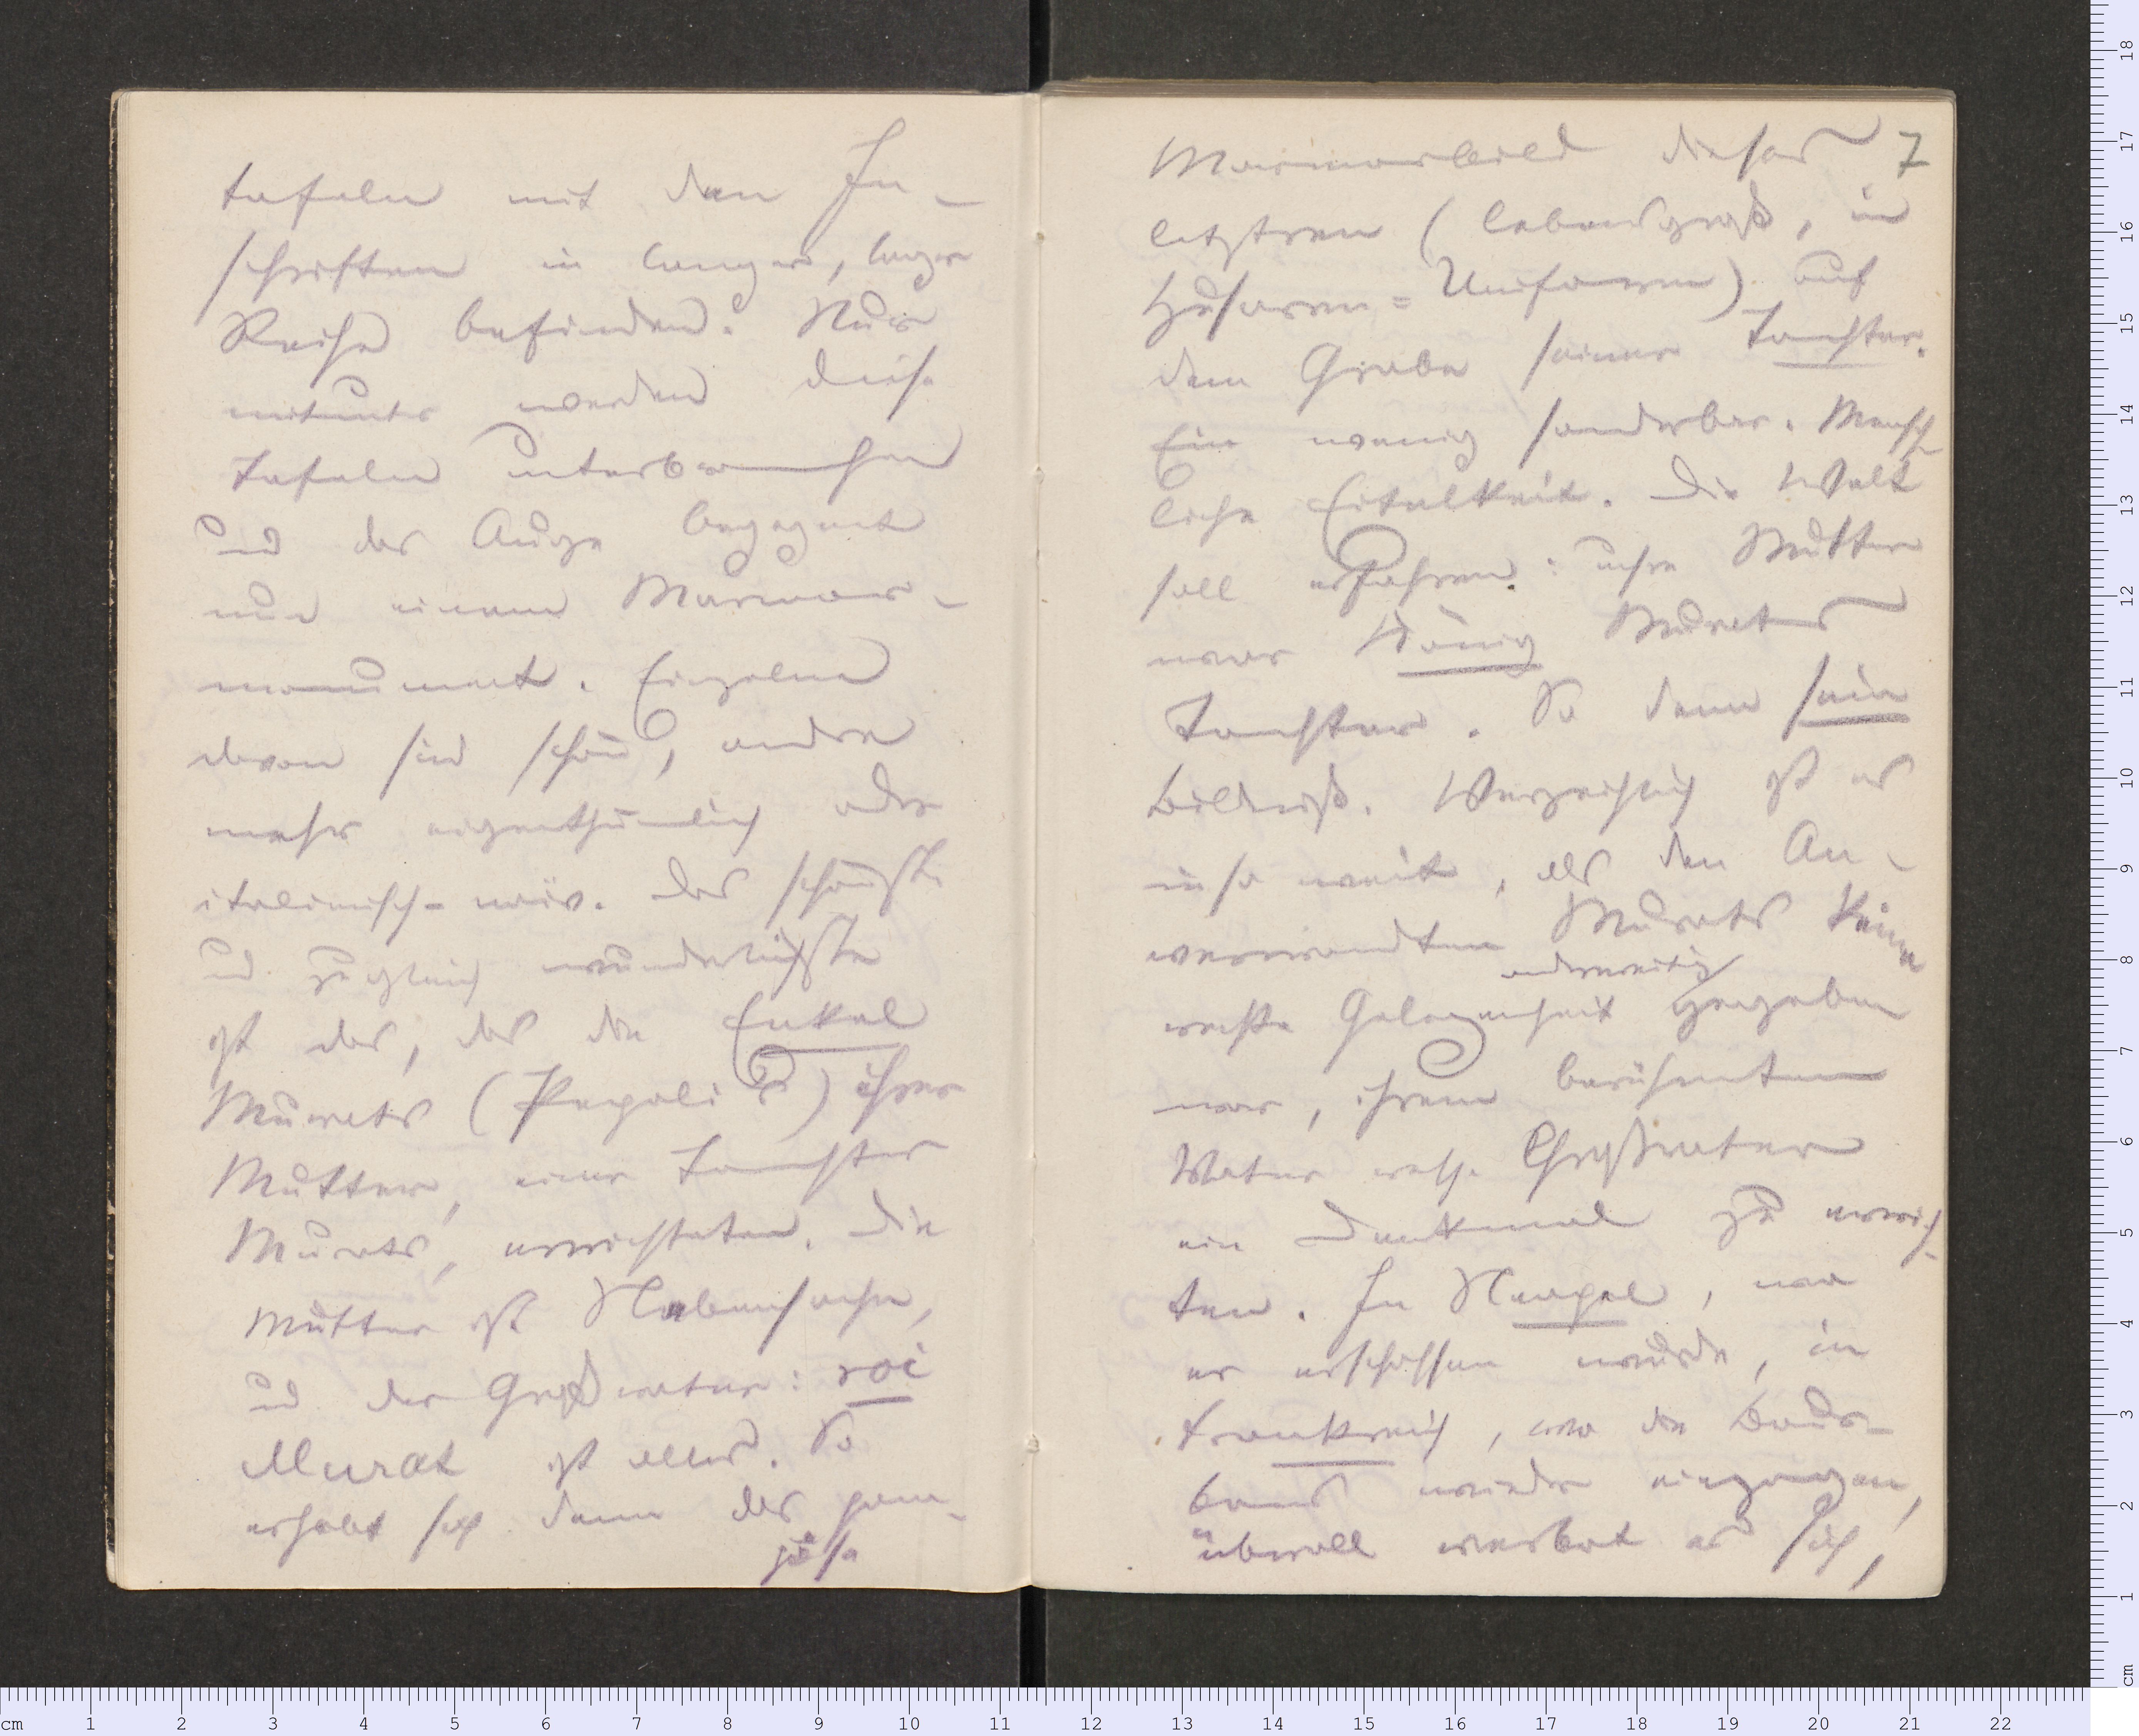 tafeln mit den In-
schriften in langer, langer
Reihe befinden. Nur
mitunter werden diese
Tafeln unterbrochen
und das Auge begegnet
nun einem Marmor-
monument. Einzelne
davon sind schön, andre
mehr eigenthümlich oder
italienisch-naiv. Das schönste
und zugleich wunderlichste
ist das, das die Enkel
Murats (Pepoli's) ihrer
Mutter, einer Tochter
Murats, errichteten. Die
Mutter ist Nebensache,
und der Großvater: roi
Murat ist alles. So
erhebt sich denn das pom-
pöse
Marmorbild dieses 7
letztren (lebensgroß, in
Husaren-Uniform) auf
dem Grabe seiner Tochter.
Ein wenig sonderbar. Mensch-
liche Eitelkeit. Die Welt
soll erfahren: unsre Mutter
war König Murats
Tochter. So denn sein
Bildniß. Verzeihlich ist es
in so weit, als den An-
verwandten Murats keine
anderweitig
rechte Gelegenheit gegeben
war, ihrem berühmten
Vater resp. Großvater
ein Denkmal zu errich-
ten. In Neapel, wo
er erschossen wurde, in
Frankreich, wo die Bour-
bons wieder einzogen,
überall verbot es sich,